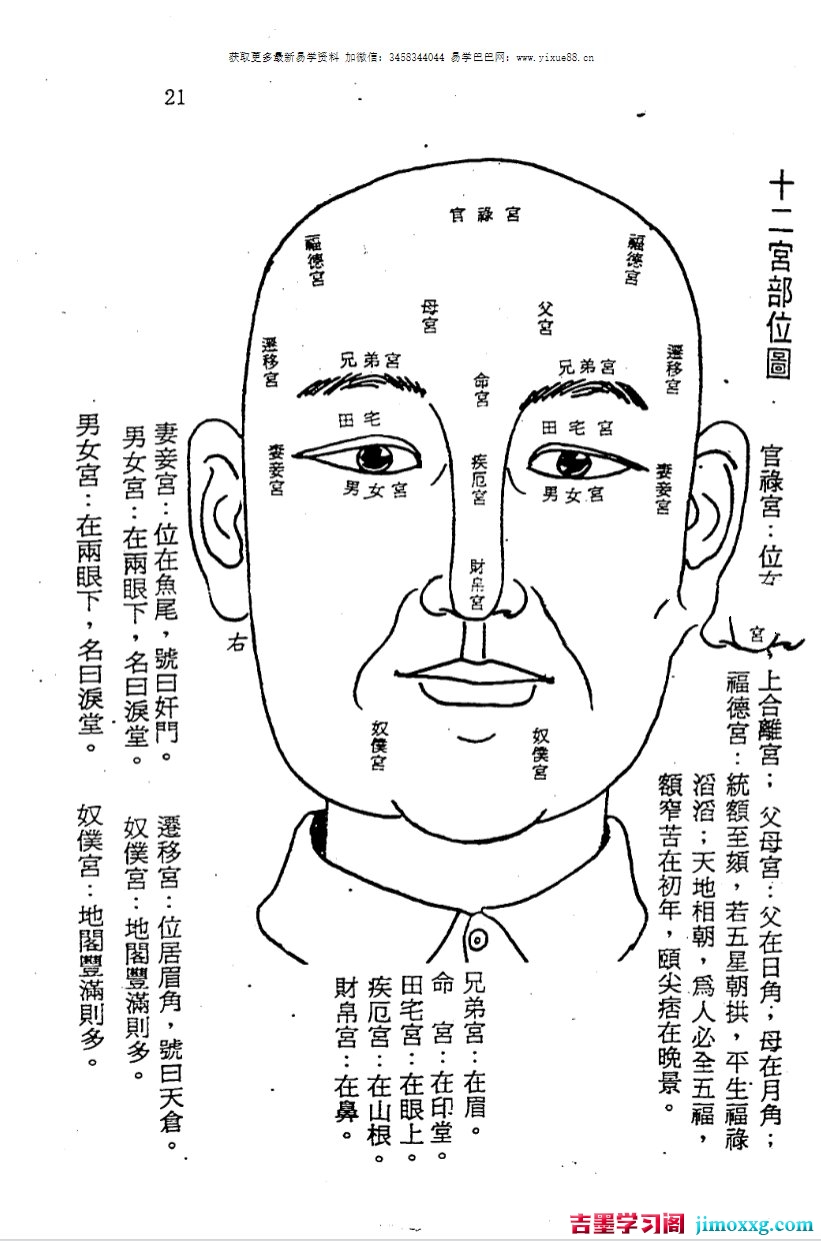 获取更多最新易学资料 加微信：3458344044 易学巴巴网：www.yixue88.cn
21
十二宮部位圖
官祿宮
福德宮
福德宮
母宮
父宮
遷移宮
遷移宮
兄弟宮
兄弟宮
命宮
田宅
田宅宮
妻妾宮
妻妾宮
疾厄宮
男女宮
男女宮
財帛宮
右
宮
奴僕宮
奴僕宮
官祿宮：位
上合離宮；父母宮：父在日角；母在月角；
福德宮：統額至頦，若五星朝拱，平生福祿
滔滔；天地相朝，爲人必全五福，
額窄苦在初年，頤尖痞在晚景。
兄弟宮：在眉。
命　宮：在印堂。
田宅宮：在眼上。
疾厄宮：在山根。
財帛宮：在鼻。
妻妾宮：位在魚尾，號曰奸門。
男女宮：在兩眼下，名曰淚堂。
男女宮：在兩眼下，名曰淚堂。
遷移宮：位居眉角，號曰天倉。
奴僕宮：地閣豐滿則多。
奴僕宮：地閣豐滿則多。
吉墨学习阁 jimoxxg.com